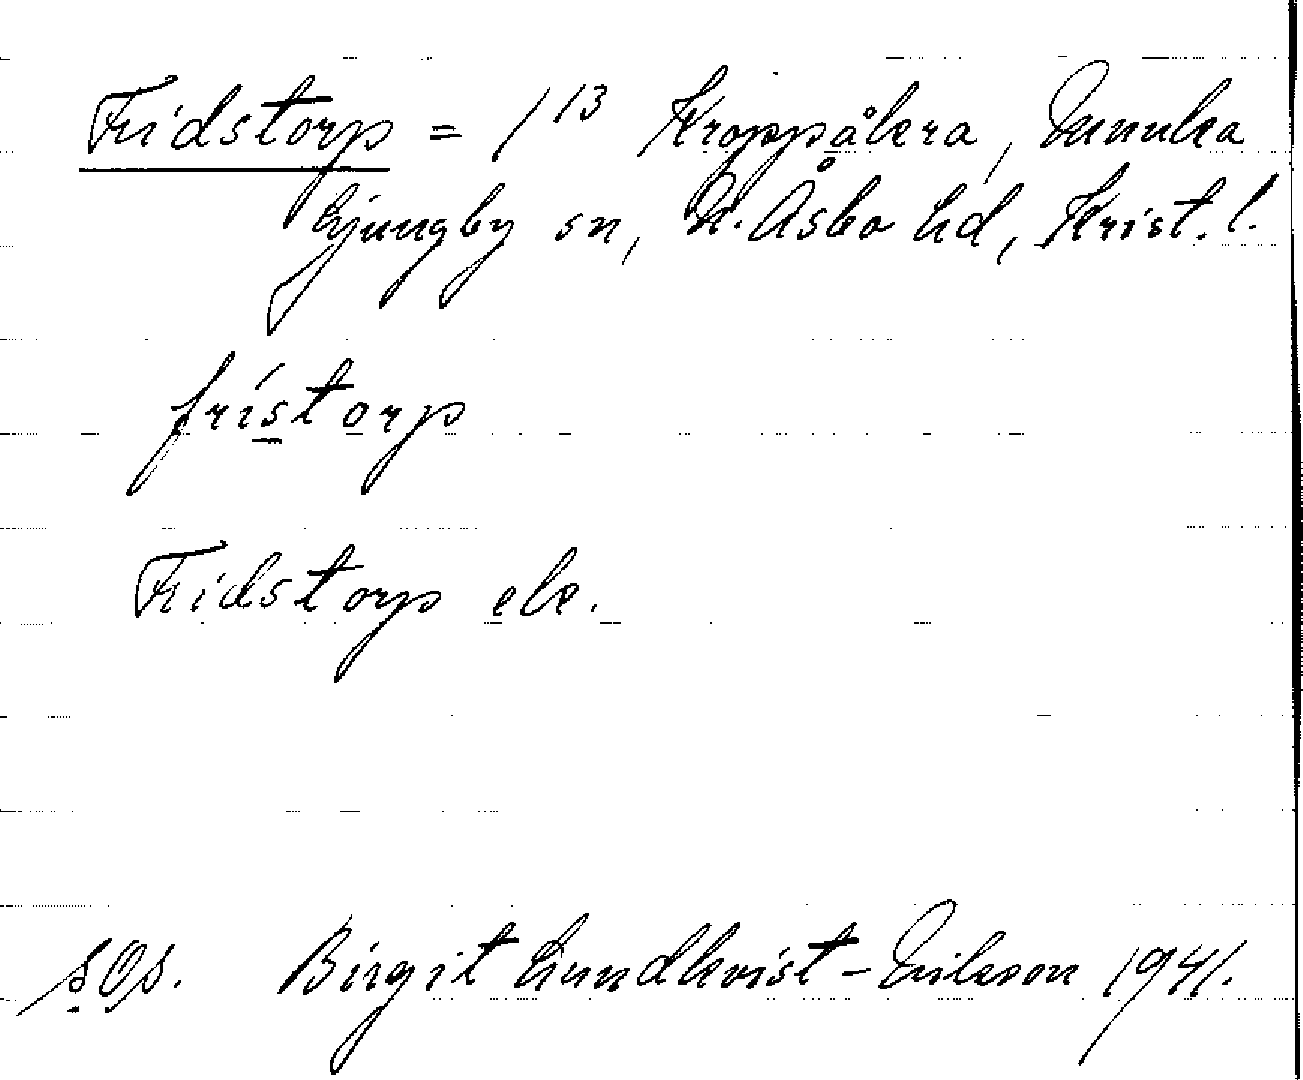 Fridstorp = 1¹³ Kroppåkra, Munka
Ljungby sn, N. Åsbo hd, Krist. l.
frístorp
Fridstorp ek.
Birgit Lundkvist - Nilsson 1941.